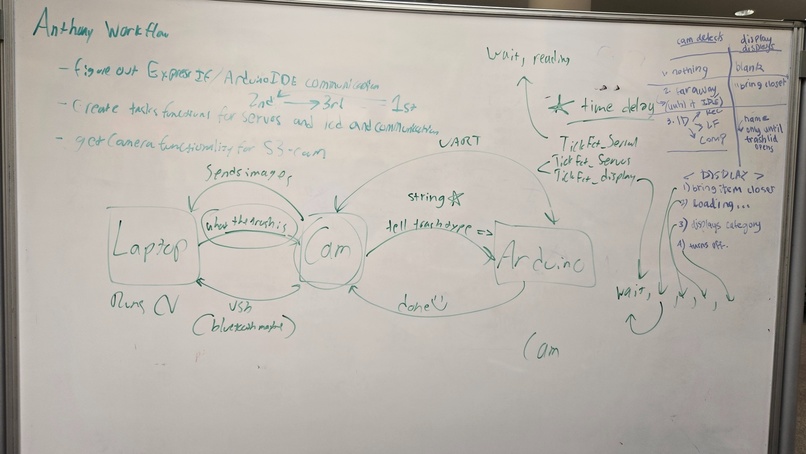 Anthony Workflow
- figure out Express IF/Arduino IDE communication
2nd → 3rd - 1st
- Create tasks functions for servos and lcd and communication
- get Camera functionality for S3-cam
Sends images
Laptop
what the trash is
Cam
Runs CV
USB
(bluetooth maybe)
UART
string
tell trashtype =>
Arduino
done
Cam
wait, reading
time delay
TickFct_Serial
TickFct_Servos
TickFct_display
wait, , , , ,
cam detects
display displays
1. nothing
blank
2. far away
(until it IDs)
"bring closer"
3. ID
REC
LF
Comp
name
only until
trash lid
opens
< DISPLAY >
1) bring item closer
2) Loading...
3) displays category
4) turns off.